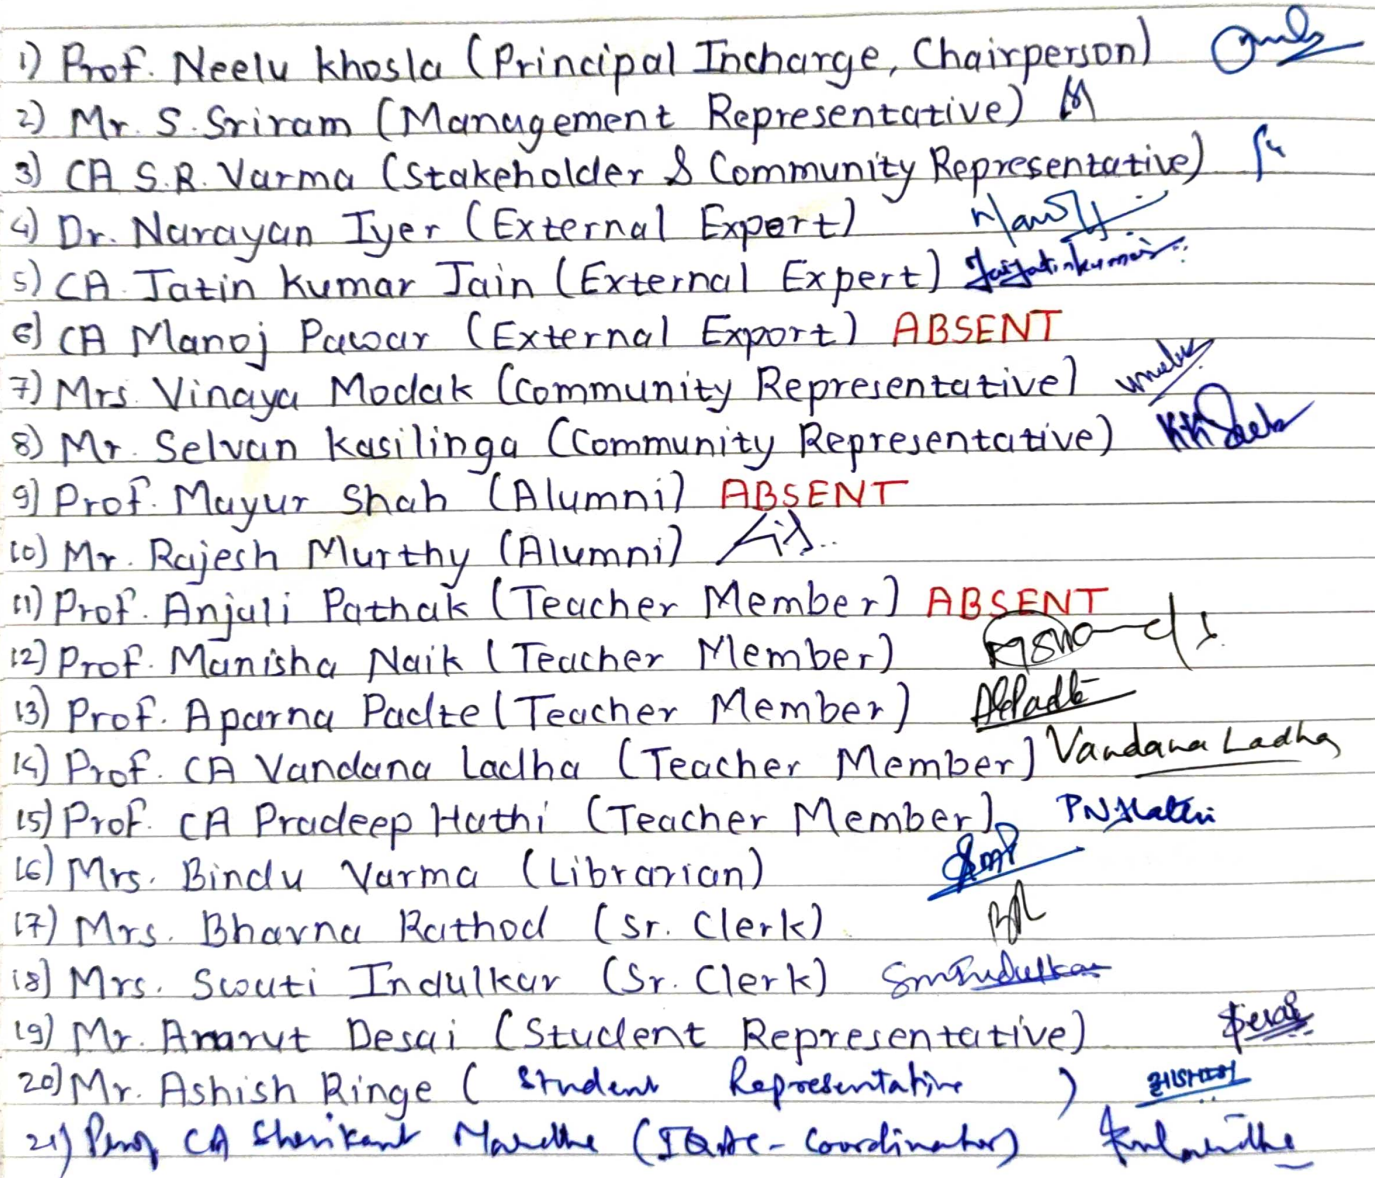 1) Prof. Neelu Khosla (Principal Incharge, Chairperson)
2) Mr. S. Sriram (Management Representative)
3) CA S.R. Varma (Stakeholder & Community Representative)
4) Dr. Narayan Iyer (External Expert)
5) CA Jatin Kumar Jain (External Expert)
6) CA Manoj Pawar (External Export) ABSENT
7) Mrs. Vinaya Modak (Community Representative)
8) Mr. Selvan Kasilinga (Community Representative)
9) Prof. Mayur Shah (Alumni) ABSENT
10) Mr. Rajesh Murthy (Alumni)
11) Prof. Anjali Pathak (Teacher Member) ABSENT
12) Prof. Manisha Naik (Teacher Member)
13) Prof. Aparna Padte (Teacher Member)
14) Prof. CA Vandana Ladha (Teacher Member) Vandana Ladha
15) Prof. CA Pradeep Hathi (Teacher Member) PNHathi
16) Mrs. Bindu Varma (Librarian)
17) Mrs. Bhavna Rathod (Sr. Clerk)
18) Mrs. Swati Indulkar (Sr. Clerk) SmIndulkar
19) Mr. Desai (Student Representative)
20) Mr. Ashish Ringe (Student Representative)
21) Prof CA Sherikant (IQAC - Coordinator)